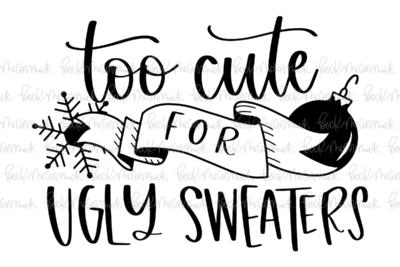 too cute
FOR
UGLY SWEATERS